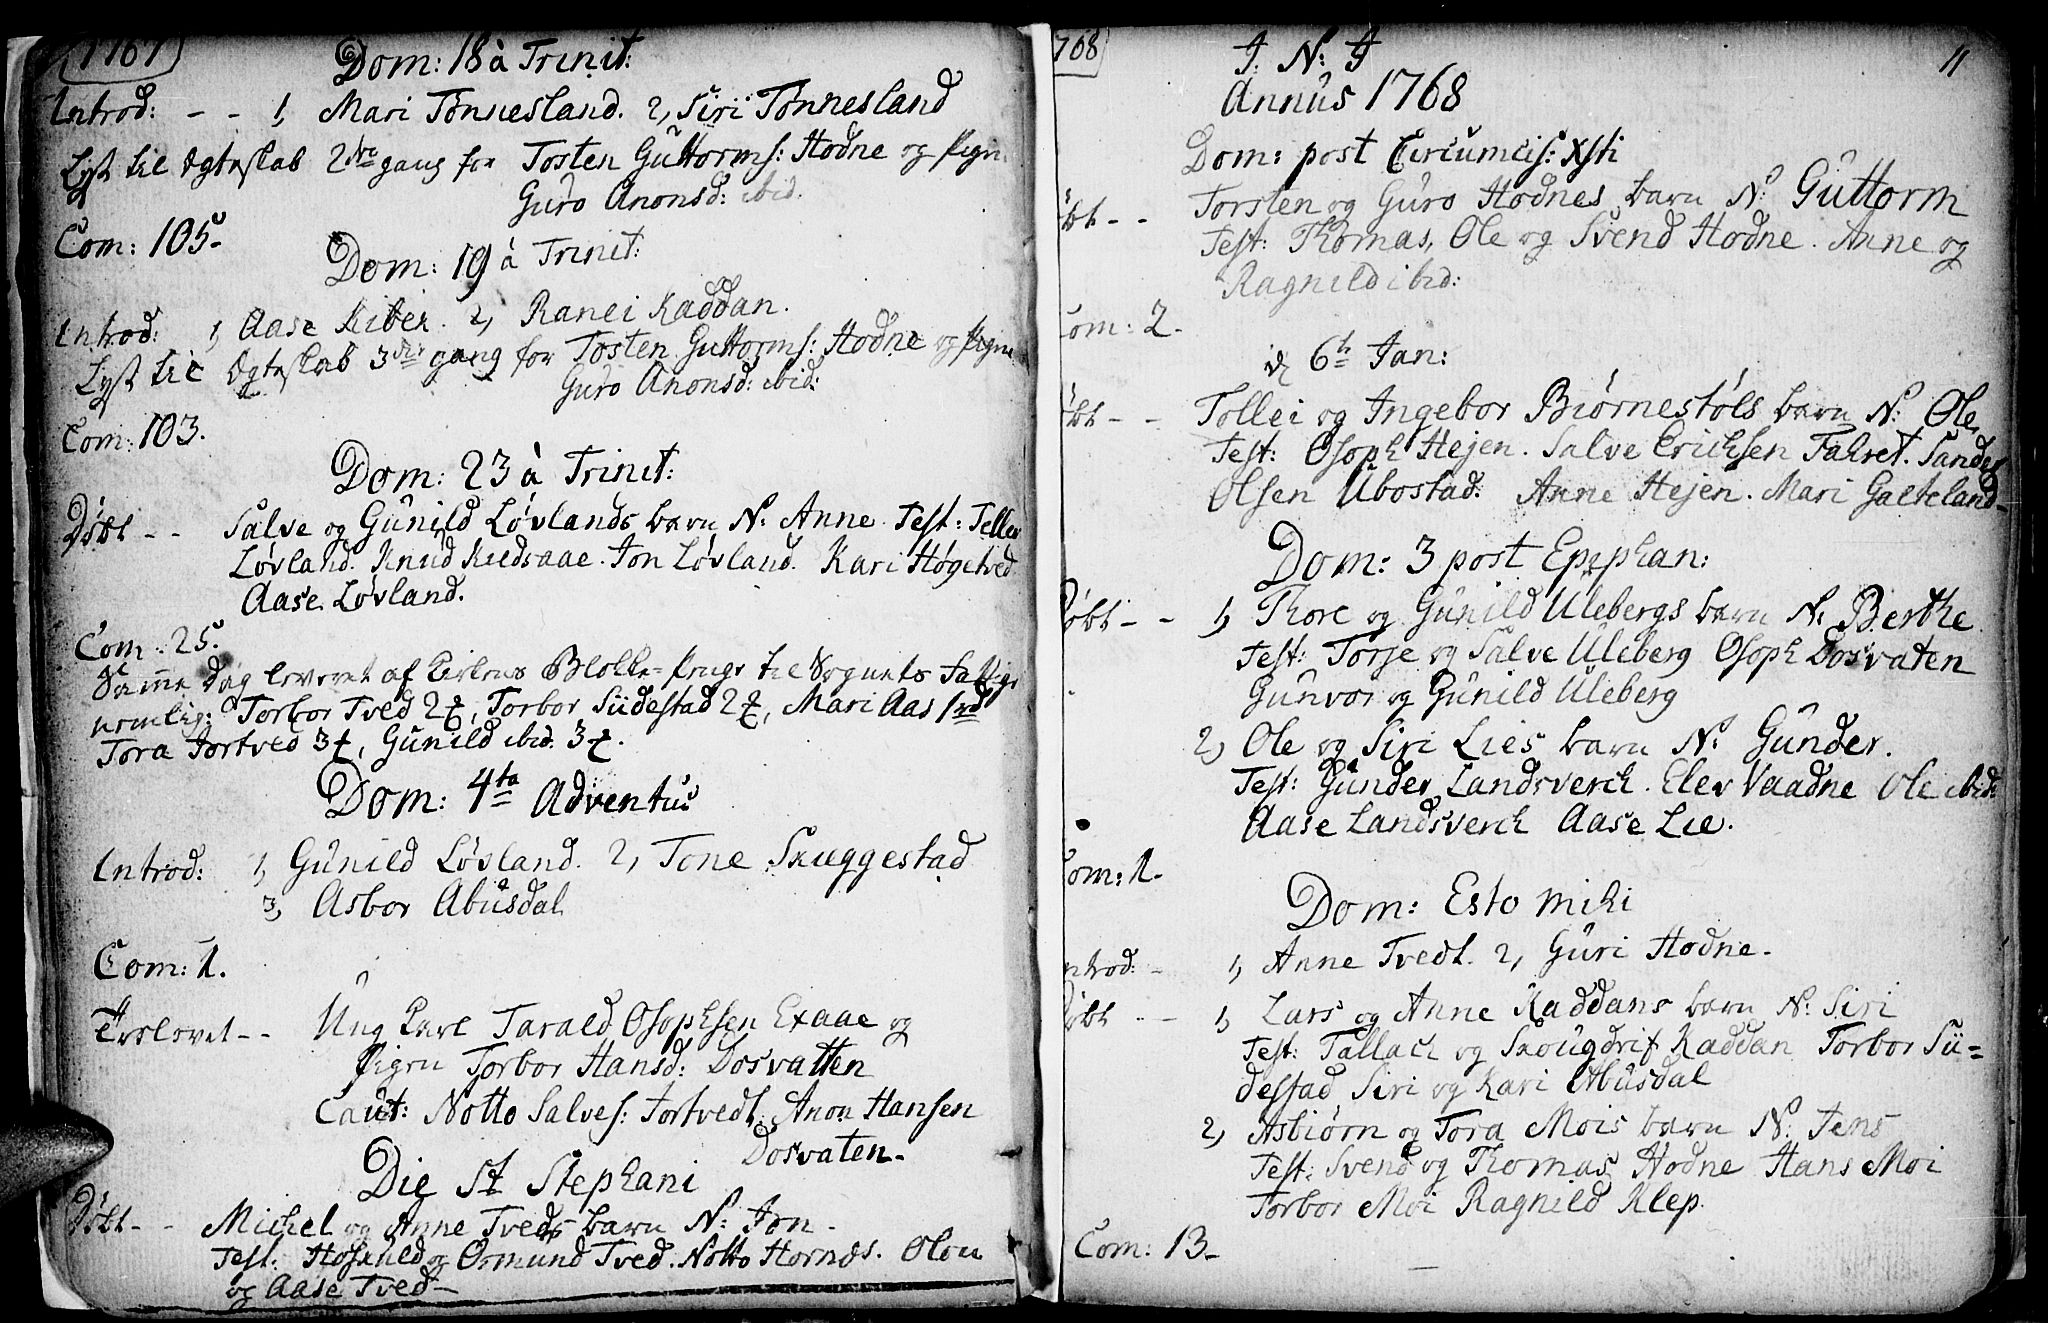 1767
Dom: 18 à Trinit:
Introd: - - 1, Mari Tønnesland. 2, Siri Tønnesland
Lyst til Ægteskab 2dre gang for Tosten Guttorms: Hodne og Pigen
Guro Anonsd: ibid.
Com: 105.
Dom: 19 à Trinit:
Introd: 1, Aase Kiber. 2, Ranei Kaddan.
Lyst til Ægteskab 3die gang for Tosten Guttorms: Hodne og Pigen
Guro Anonsd: ibid:
Com: 103.
Dom: 23 à Trinit:
Døbt - - Salve og Gunild Løvlands barn N: Anne. Test: Tellev
Løvland. Knud Kiedsaae. Jon Løvland. Kari Høgetved
Aase Løvland.
Com: 25.
Samme Dag leveret af Kirkens Blokke-Penge til Sognets Fattige
nemlig: Torbor Tved 2, Torbor Südestad 2, Mari Aas 1
Tora Tortved 3, Gunild ibid. 3.
Dom: 4ta Adventus
Introd: 1, Gunild Løvland. 2, Tone Skuggestad
3, Asbor Abusdal
Com: 1.
Trolovet - - Ung Karl Tarald Osophsen Exaae og
Pigen Torbor Hansd: Dosvatten
Caut: Notto Salves: Tortvedt. Anon Hansen
Dosvaten.
Die St Stephani
Døbt - - Michel og Anne Tveds barn N: Jon.
Test: Hoskuld og Osmund Tved. Notto Hornes. Olou
og Aase Tved
768
11
J: N: J
Annus 1768
Dom: post Circumcis: Xsti
øbt - - Torsten og Guro Hodnes barn N: Guttorm
Test: Thomas, Ole og Svend Hodne. Anne og
Ragnild ibid:
Com: 2.
d 6te Jan:
øbt - - Tollei og Ingebor Biørnestøls barn N: Ole
Test: Osoph Hejen. Salve Erichsen Fahret. Sander
Olsen Ubostad. Anne Hejen. Mari Gaeteland
Dom: 3 post Epiphan:
Døbt - - 1, Thore og Gunild Ulebergs barn N: Berthe
Test: Torje og Salve Uleberg Osoph Dosvaten
Gunvor og Gunild Uleberg
2, Ole og Siri Lies barn N: Gunder.
Test: Gunder Landsverch. Elev Vaadne Ole ibid:
Aase Landsverch Aase Lie.
Com: 1.
Dom: Esto mihi
Introd: - 1, Anne Tvedt. 2, Guri Hodne.
Døbt - - 1, Lars og Anne Kaddans barn N: Siri
Test: Tallach og Skougdrif Kaddan Torbor Sü=
destad Siri og Kari Abusdal
2, Asbiørn og Tora Mois barn N: Jens
Test: Svend og Thomas Hodne Hans Moi
Torbor Moi Ragnild Klep.
Com: 13.